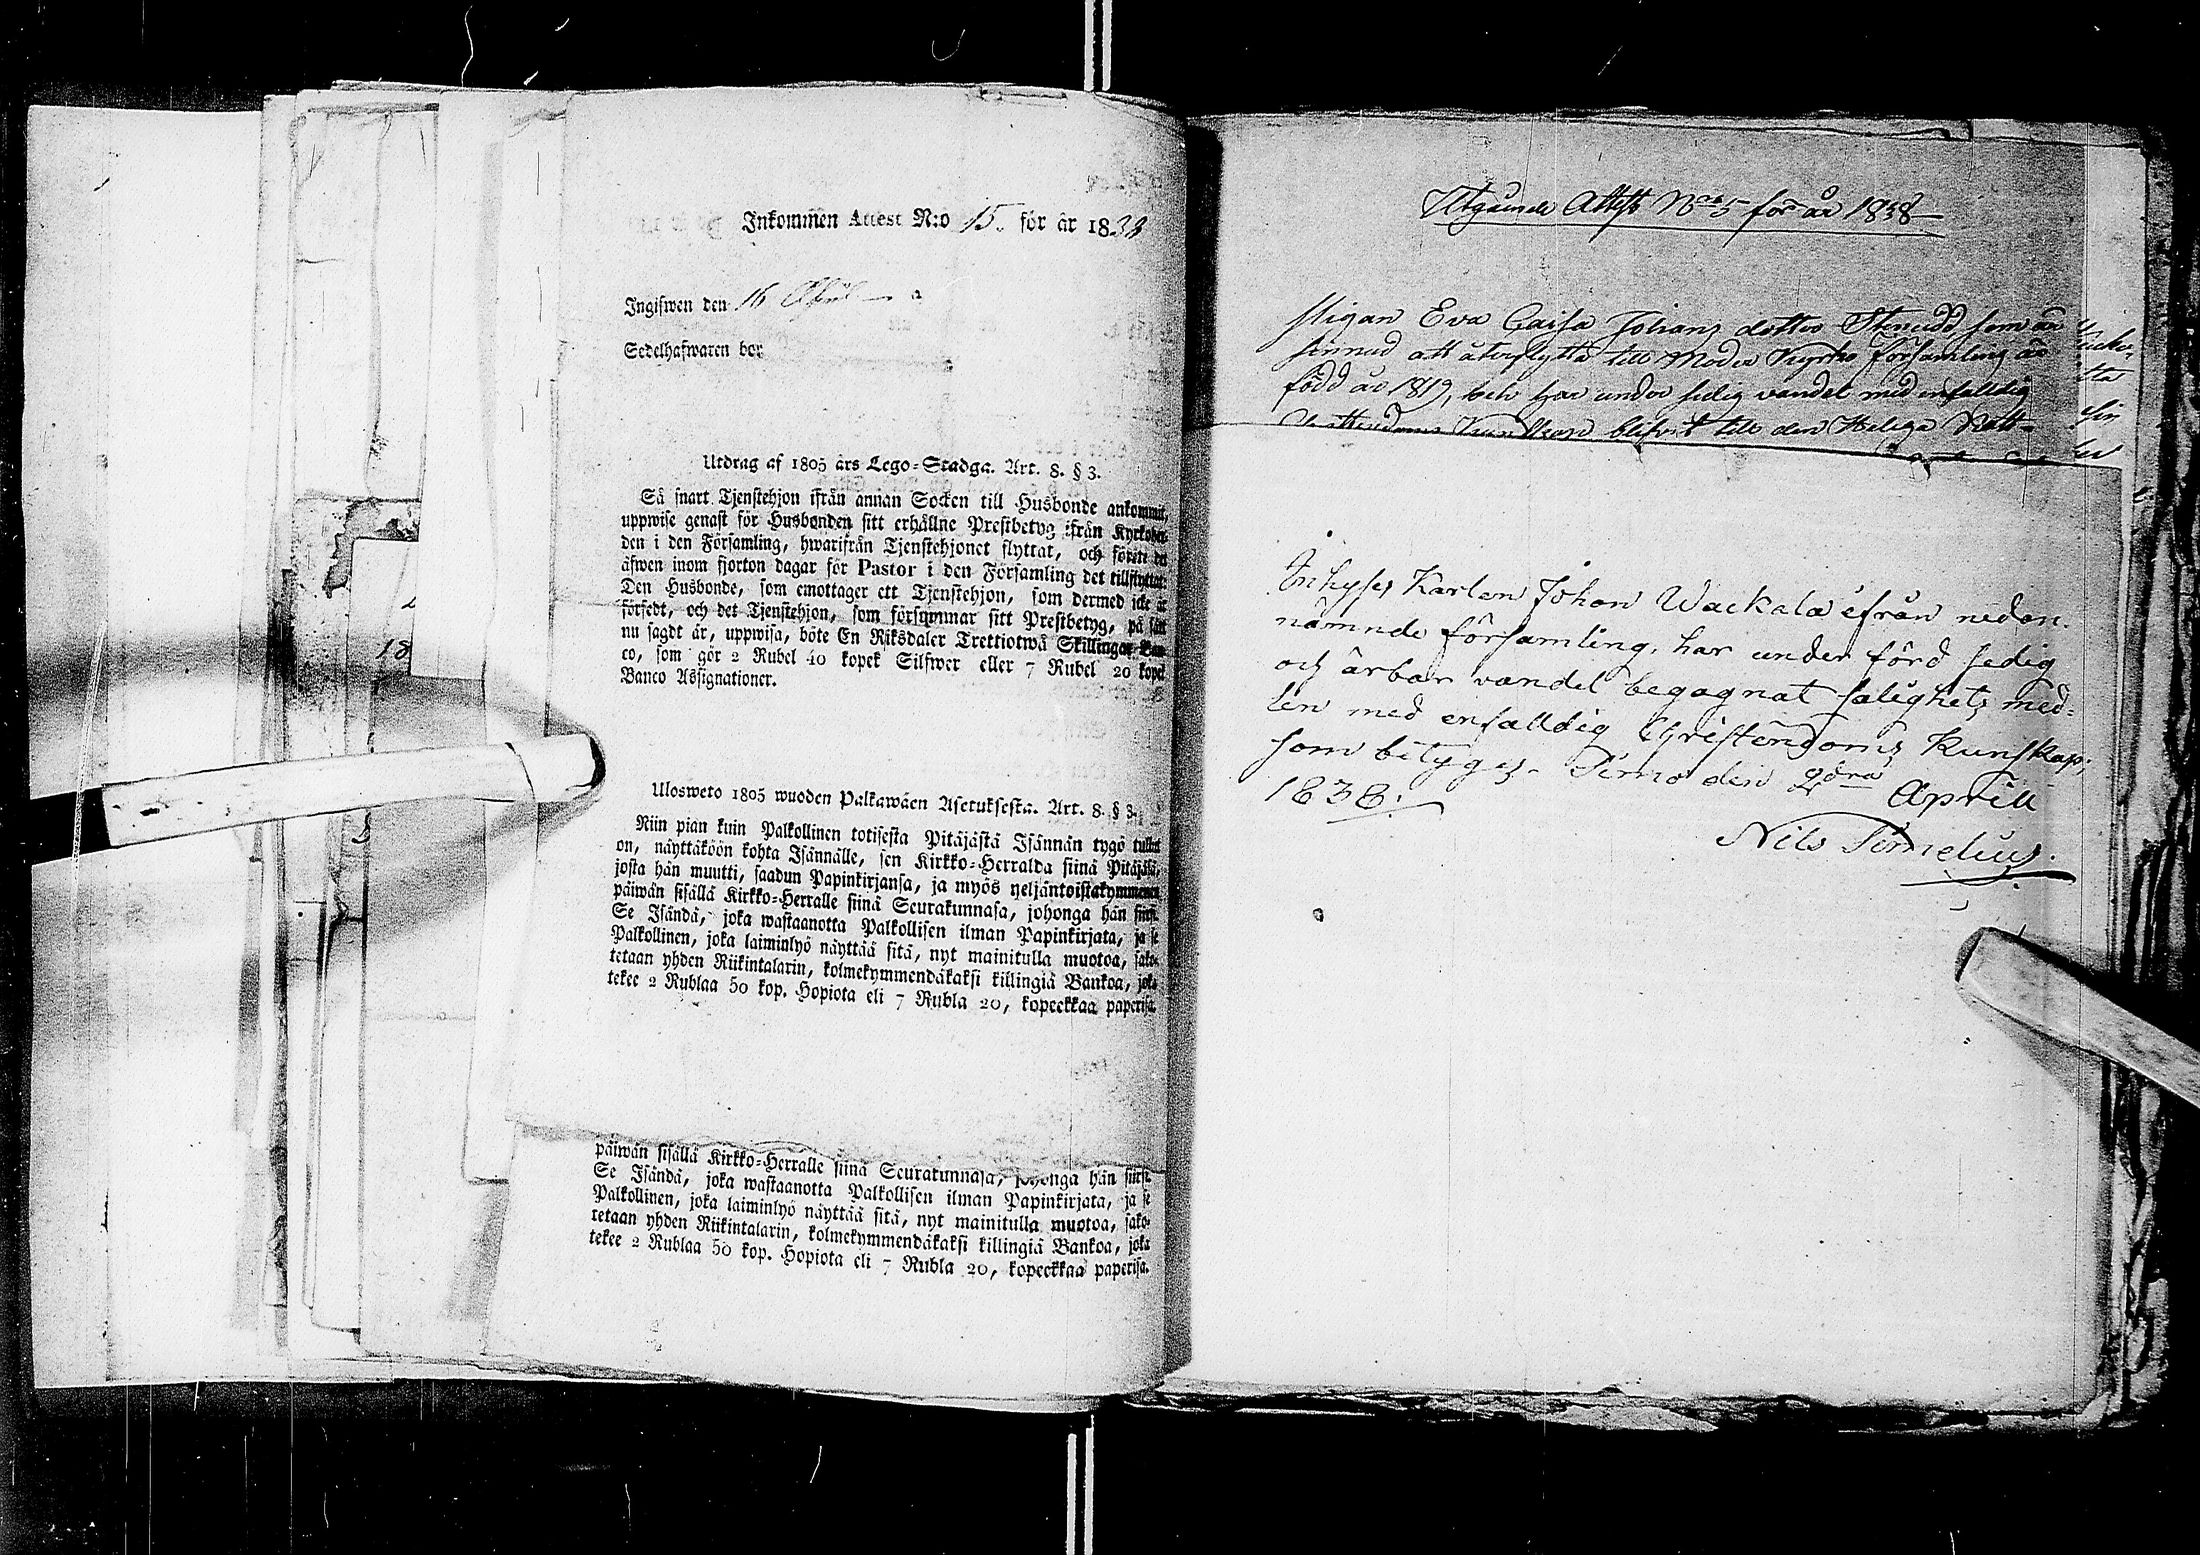 Inkommen Attest N:o 15. för år 1838
Ingifwen den 16 April
Sedelhafwaren bor
Utdrag af 1805 års Lego-Stadga. Art. 8. § 3.
Så snart Tjenstehjon ifrån annan Socken till Husbonde ankommit,
uppwise genast för Husbonden sitt erhållne Prestbetyg ifrån Kyrkoher-
den i den Församling, hwarifrån Tjenstehjonet flyttat, och förete det
äfwen inom fjorton dagar för Pastor i den Församling det tillflyttat.
Den Husbonde, som emottager ett Tjenstehjon, som dermed icke är
försedt, och det Tjenstehjon, som försummar sitt Prestbetyg, på sätt
nu sagdt är, uppwisa, böte En Riksdaler Trettiotwå Skillingar Ban-
co, som gör 2 Rubel 40 kopek Silfwer eller 7 Rubel 20 kopek
Banco Assignationer.
Ulosweto 1805 wuoden Palkawäen Asetuksesta. Art. 8. § 3.
Niin pian kuin Palkollinen toisesta Pitäjästä Isännän tygö tullut
on, näyttäköön kohta Isännälle, sen Kirkko-Herralda siinä Pitäjäsä,
josta hän muutti, saadun Papinkirjansa, ja myös neljäntoistakymmenen
päiwän sisällä Kirkko-Herralle siinä Seurakunnasa, johonga hän siirsi.
Se Isändä, joka wastaanotta Palkollisen ilman Papinkirjata, ja se
Palkollinen, joka laiminlyö näyttää sitä, nyt mainitulla muotoa, sako-
tetaan yhden Riikintalarin, kolmekymmendäkaksi killingiä Bankoa, joka
tekee 2 Rublaa 50 kop. Hopiota eli 7 Rubla 20, kopeekkaa paperisa.
päiwän sisällä Kirkko-Herralle siinä Seurakunnasa, johonga hän siirsi.
Se Isändä, joka wastaanotta Palkollisen ilman Papinkirjata, ja se
Palkollinen, joka laiminlyö näyttää sitä, nyt mainitulla muotoa, sako-
tetaan yhden Riikintalarin, kolmekymmendäkaksi killingiä Bankoa, joka
tekee 2 Rublaa 50 kop. Hopiota eli 7 Rubla 20, kopeekkaa paperisa.
Utgående Attest No 5 för år 1838
Pigan Eva Caisa Johans dotter Stenudd som är
sinnad att återflytta till Moder Kyrko församling är
född år 1819, och har under sedig vandel med enfalldig
Christendoms Kundskap blifvit till den Heliga Natt-
Inhyses Karlen Johan Wackala ifrån nedan-
nämnde församling, har under förd sedig
och ärbar vandel begagnat salighets med-
len med enfalldig Christendoms Kunskap,
som betyges. Simo den 2dra April
1838.
Nils Simelius.